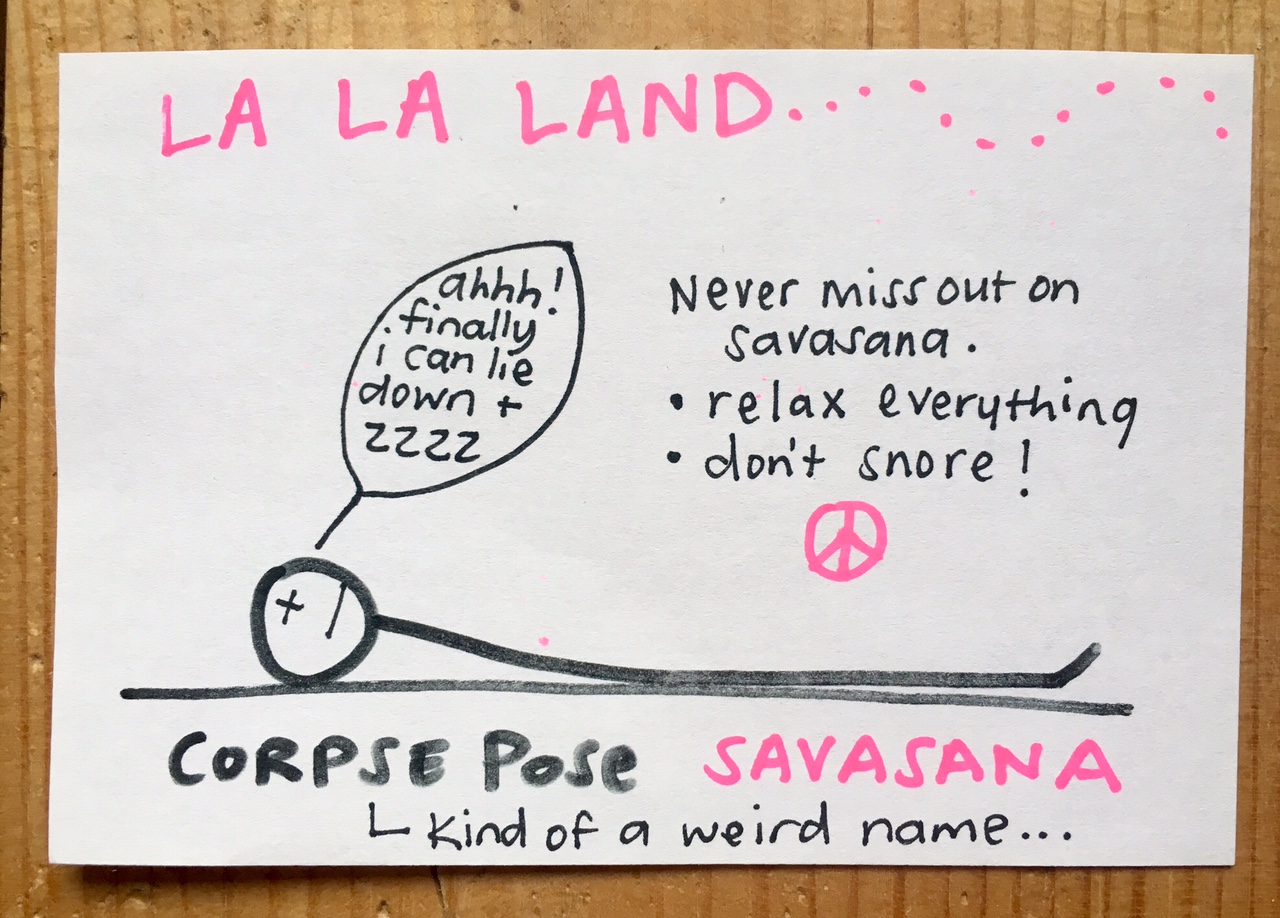 LA LA LAND...
ahhh!
finally
i can lie
down +
zzzz
Never miss out on
savasana.
• relax everything
• don't snore!
CORPSE POSE SAVASANA
kind of a weird name...